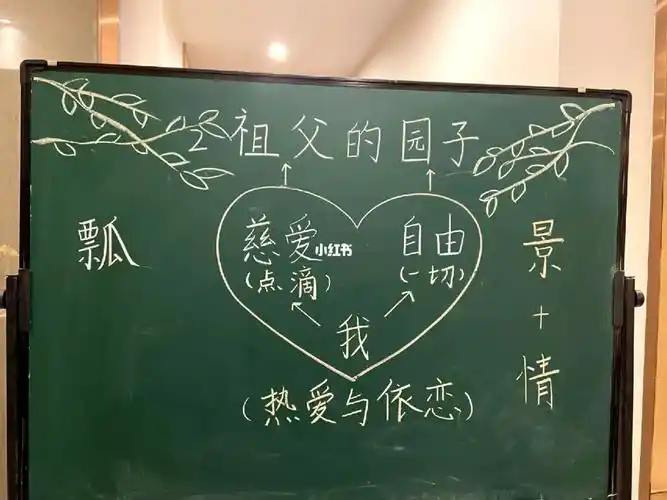 2 祖父的园子
瓢
慈爱
(点滴)
小红书
自由
(一切)
我
(热爱与依恋)
景
+
情